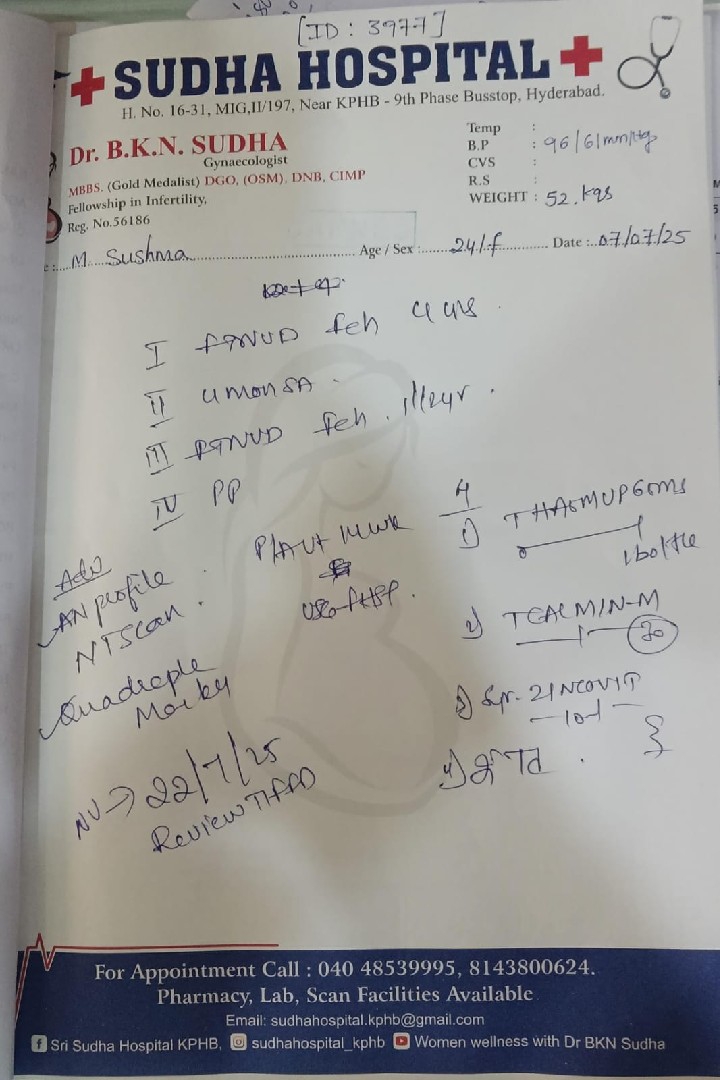 [ID : 3977]
SUDHA HOSPITAL
H. No. 16-31, MIG,II/197, Near KPHB - 9th Phase Busstop, Hyderabad.
Dr. B.K.N. SUDHA
Gynaecologist
MBBS. (Gold Medalist) DGO, (OSM), DNB, CIMP
Fellowship in Infertility,
Reg. No.56186
Temp :
B.P : 96/61mmHg
CVS :
R.S :
WEIGHT : 52. kgs
M. Sushma Age / Sex : 24/f Date : 07/07/25
I FTNVD feh 4 yrs.
II 4 mon SA.
III FTNVD feh. 
IV PP
P/A ut
Adv
AN profile
NT Scan.
Quadraple
Marker
NV → 22/7/25
Review
1)
1 bottle
2) T CALMIN-M
30
3) Syp. ZINCOVIT
4)
For Appointment Call : 040 48539995, 8143800624.
Pharmacy, Lab, Scan Facilities Available
Email: sudhahospital.kphb@gmail.com
Sri Sudha Hospital KPHB, sudhahospital_kphb Women wellness with Dr BKN Sudha